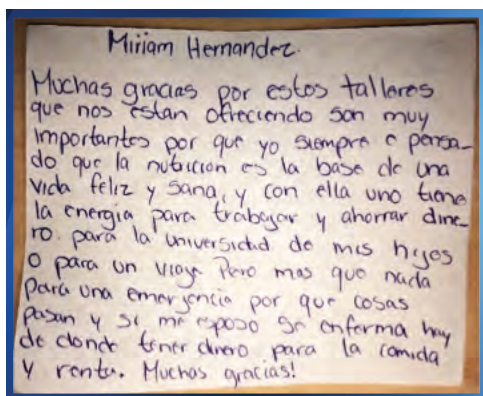 Miriam Hernandez.
Muchas gracias por estos talleres
que nos estan ofreciendo son muy
importantes por que yo siempre e pensa-
do que la nutricion es la base de una
vida feliz y sana, y con ella uno tiene
la energia para trabajar y ahorrar dine-
ro. para la universidad de mis hijos
o para un viaje Pero mas que nada
para una emergencia por que cosas
pasan y si mi esposo se enferma hay
de donde tener dinero para la comida
y renta. Muchas gracias!